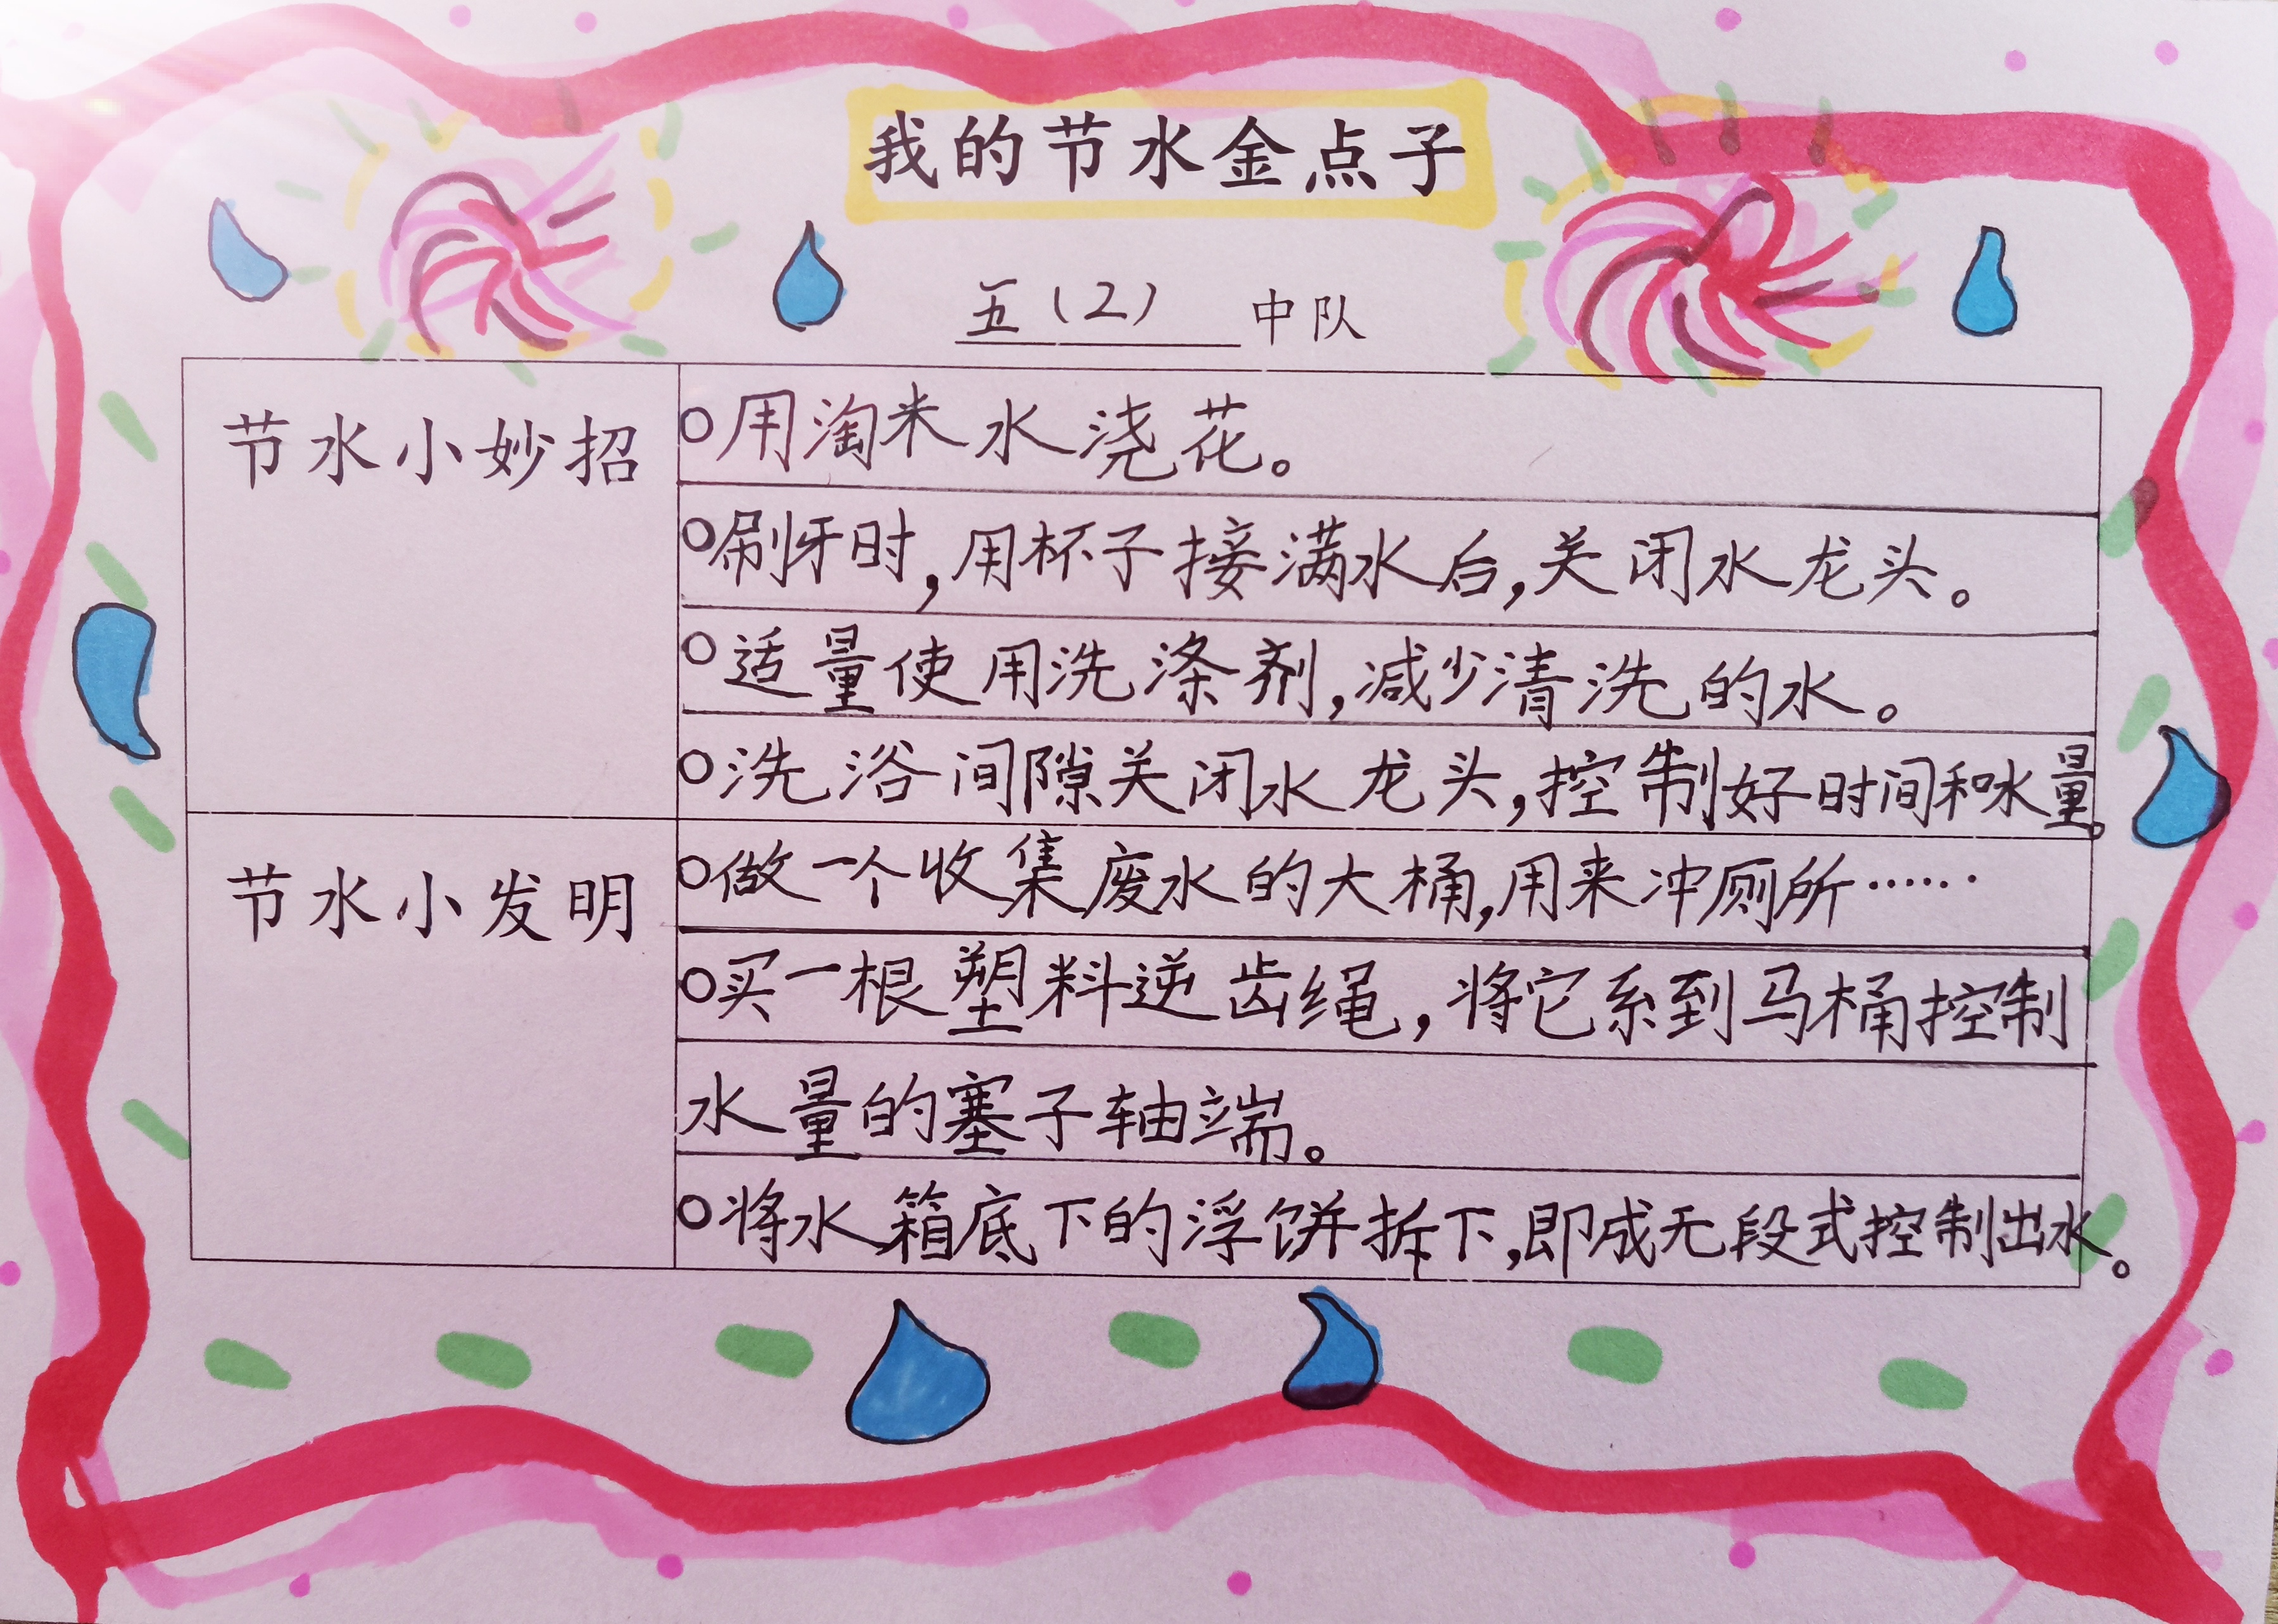 我的节水金点子
五（2） 中队
节水小妙招
○用淘米水浇花。
○刷牙时，用杯子接满水后，关闭水龙头。
○适量使用洗涤剂，减少清洗的水。
○洗浴间隙关闭水龙头，控制好时间和水量。
节水小发明
○做一个收集废水的大桶，用来冲厕所……
○买一根塑料逆齿绳，将它系到马桶控制
水量的塞子轴端。
○将水箱底下的浮饼拆下，即成无段式控制出水。